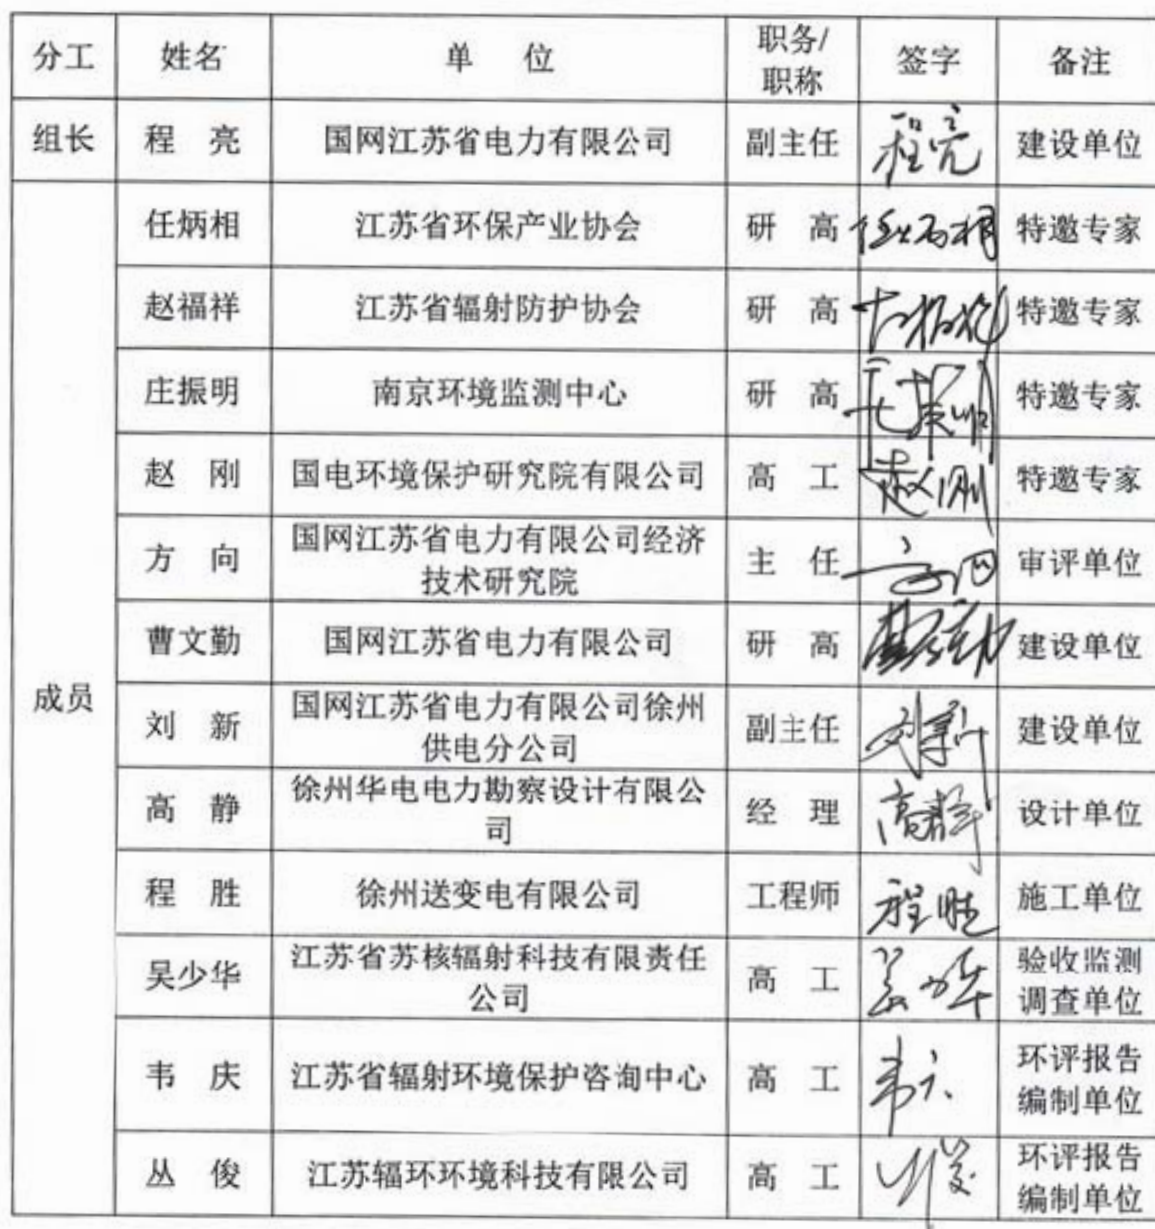 分工 姓名 单 位 职务/职称 签字 备注
组长 程 亮 国网江苏省电力有限公司 副主任 程亮 建设单位
成员
任炳相 江苏省环保产业协会 研 高 任炳相 特邀专家
赵福祥 江苏省辐射防护协会 研 高 特邀专家
庄振明 南京环境监测中心 研 高 庄振明 特邀专家
赵 刚 国电环境保护研究院有限公司 高 工 赵刚 特邀专家
方 向 国网江苏省电力有限公司经济
技术研究院 主 任 方向 审评单位
曹文勤 国网江苏省电力有限公司 研 高 曹文勤 建设单位
刘 新 国网江苏省电力有限公司徐州
供电分公司 副主任 刘新 建设单位
高 静 徐州华电电力勘察设计有限公
司 经 理 高静 设计单位
程 胜 徐州送变电有限公司 工程师 程胜 施工单位
吴少华 江苏省苏核辐射科技有限责任
公司 高 工 吴少华 验收监测
调查单位
韦 庆 江苏省辐射环境保护咨询中心 高 工 韦庆 环评报告
编制单位
丛 俊 江苏辐环环境科技有限公司 高 工 丛俊 环评报告
编制单位